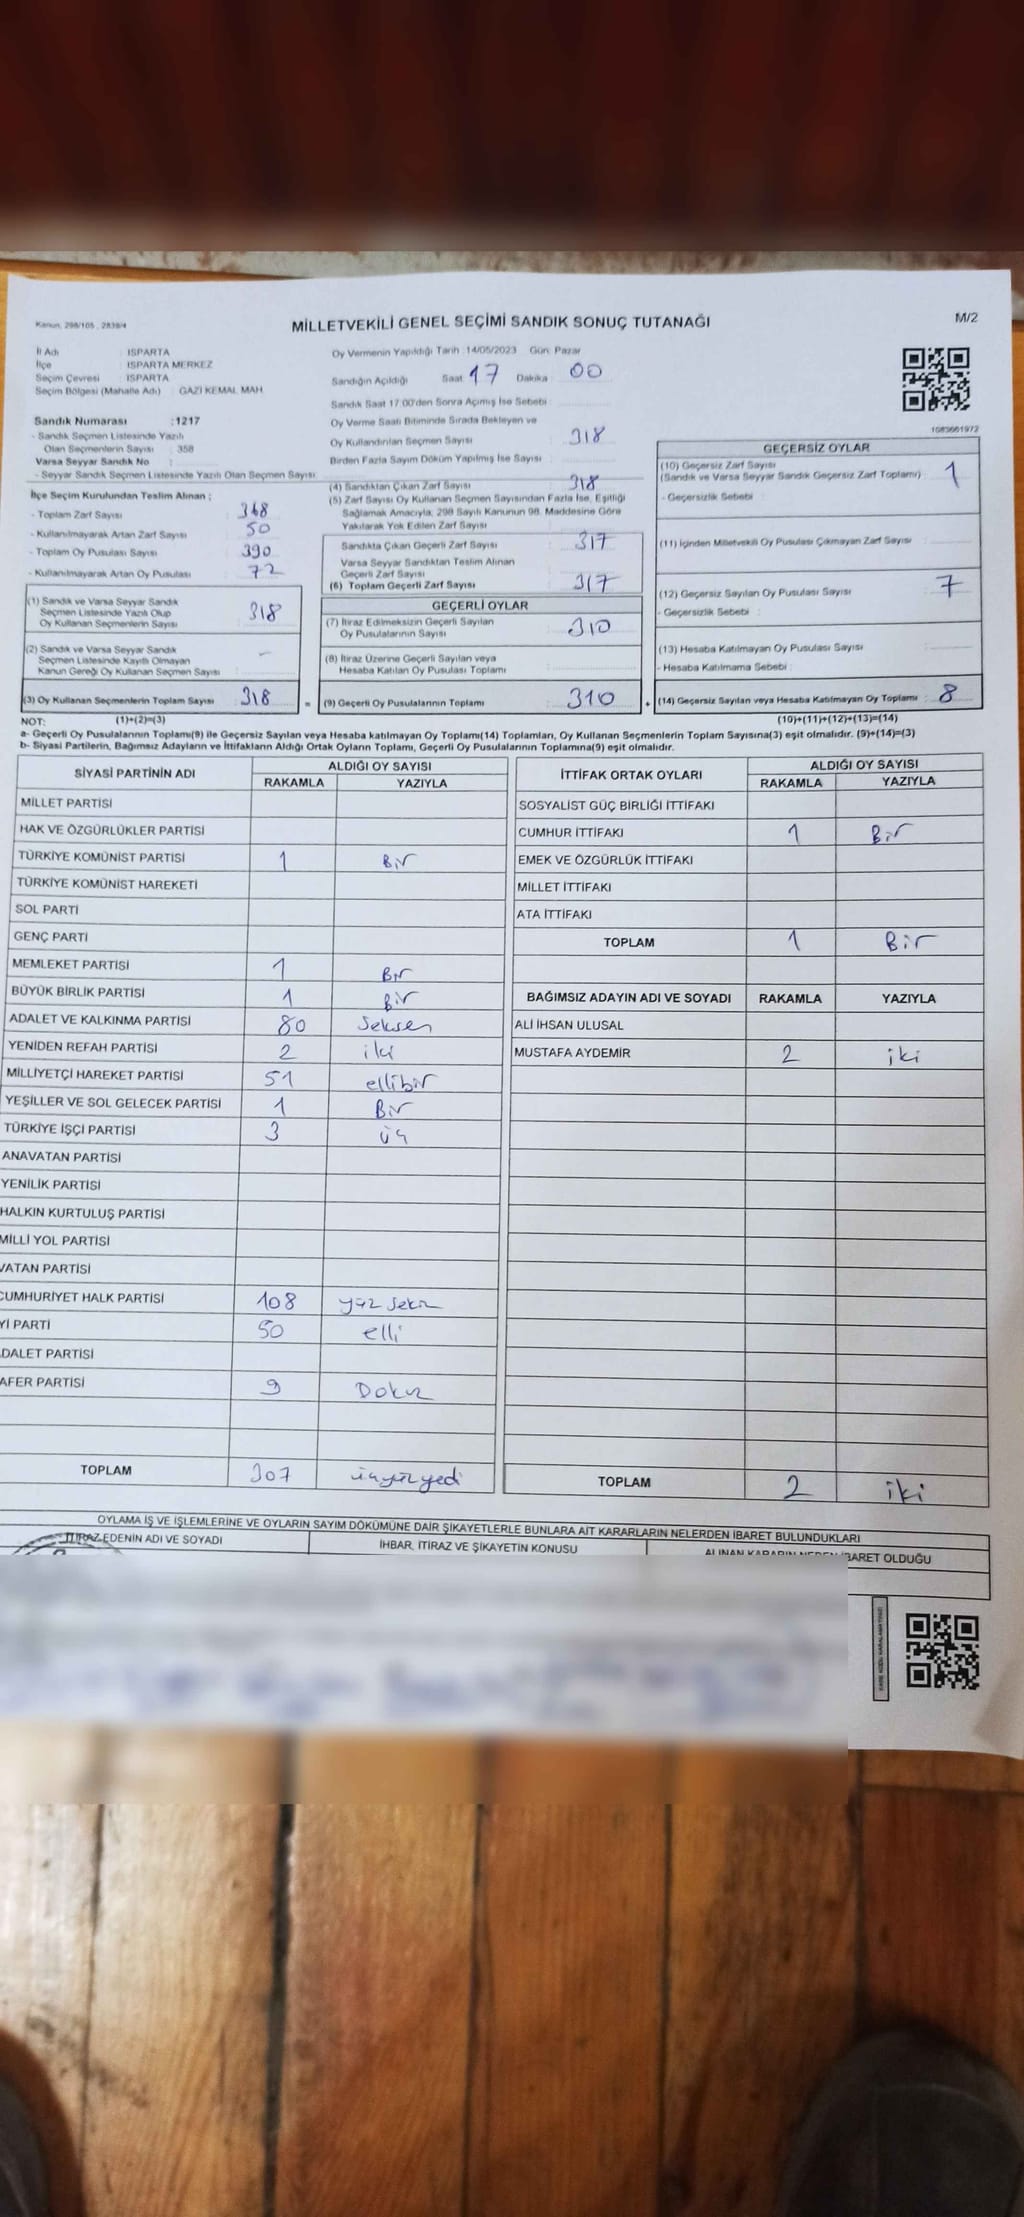 Kanun, 298/105 , 2839/4
MİLLETVEKİLİ GENEL SEÇİMİ SANDIK SONUÇ TUTANAĞI
M/2
İl Adı : ISPARTA
İlçe : ISPARTA MERKEZ
Seçim Çevresi : ISPARTA
Seçim Bölgesi (Mahalle Adı) : GAZİ KEMAL MAH
Sandık Numarası :1217
- Sandık Seçmen Listesinde Yazılı
Olan Seçmenlerin Sayısı : 358
Varsa Seyyar Sandık No :
- Seyyar Sandık Seçmen Listesinde Yazılı Olan Seçmen Sayısı
İlçe Seçim Kurulundan Teslim Alınan :
- Toplam Zarf Sayısı : 368
- Kullanılmayarak Artan Zarf Sayısı : 50
- Toplam Oy Pusulası Sayısı : 390
- Kullanılmayarak Artan Oy Pusulası : 72
(1) Sandık ve Varsa Seyyar Sandık
Seçmen Listesinde Yazılı Olup
Oy Kullanan Seçmenlerin Sayısı : 318
(2) Sandık ve Varsa Seyyar Sandık
Seçmen Listesinde Kayıtlı Olmayan
Kanun Gereği Oy Kullanan Seçmen Sayısı : –
(3) Oy Kullanan Seçmenlerin Toplam Sayısı : 318 =
Oy Vermenin Yapıldığı Tarih :14/05/2023 Gün: Pazar
Sandığın Açıldığı Saat 17 Dakika : 00
Sandık Saat 17:00'den Sonra Açımış İse Sebebi :
Oy Verme Saati Bitiminde Sırada Bekleyen ve
Oy Kullandırılan Seçmen Sayısı : 318
Birden Fazla Sayım Döküm Yapılmış İse Sayısı :
(4) Sandıktan Çıkan Zarf Sayısı : 318
(5) Zarf Sayısı Oy Kullanan Seçmen Sayısından Fazla İse, Eşitliği
Sağlamak Amacıyla, 298 Sayılı Kanunun 98. Maddesine Göre
Yakılarak Yok Edilen Zarf Sayısı :
Sandıkta Çıkan Geçerli Zarf Sayısı : 317
Varsa Seyyar Sandıktan Teslim Alınan
Geçerli Zarf Sayısı :
(6) Toplam Geçerli Zarf Sayısı : 317
GEÇERLİ OYLAR
(7) İtiraz Edilmeksizin Geçerli Sayılan
Oy Pusulalarının Sayısı : 310
(8) İtiraz Üzerine Geçerli Sayılan veya
Hesaba Katılan Oy Pusulası Toplamı :
(9) Geçerli Oy Pusulalarının Toplamı : 310 +
1083661972
GEÇERSİZ OYLAR
(10) Geçersiz Zarf Sayısı
(Sandık ve Varsa Seyyar Sandık Geçersiz Zarf Toplamı) : 1
- Geçersizlik Sebebi :
(11) İçinden Milletvekili Oy Pusulası Çıkmayan Zarf Sayısı :
(12) Geçersiz Sayılan Oy Pusulası Sayısı : 7
- Geçersizlik Sebebi :
(13) Hesaba Katılmayan Oy Pusulası Sayısı :
- Hesaba Katılmama Sebebi :
(14) Geçersiz Sayılan veya Hesaba Katılmayan Oy Toplamı : 8
NOT: (1)+(2)=(3) (10)+(11)+(12)+(13)=(14)
a- Geçerli Oy Pusulalarının Toplamı(9) ile Geçersiz Sayılan veya Hesaba katılmayan Oy Toplamı(14) Toplamları, Oy Kullanan Seçmenlerin Toplam Sayısına(3) eşit olmalıdır. (9)+(14)=(3)
b- Siyasi Partilerin, Bağımsız Adayların ve İttifakların Aldığı Ortak Oyların Toplamı, Geçerli Oy Pusulalarının Toplamına(9) eşit olmalıdır.
SİYASİ PARTİNİN ADI ALDIĞI OY SAYISI
RAKAMLA YAZIYLA
MİLLET PARTİSİ
HAK VE ÖZGÜRLÜKLER PARTİSİ
TÜRKİYE KOMÜNİST PARTİSİ 1 Bir
TÜRKİYE KOMÜNİST HAREKETİ
SOL PARTİ
GENÇ PARTİ
MEMLEKET PARTİSİ 1 Bir
BÜYÜK BİRLİK PARTİSİ 1 Bir
ADALET VE KALKINMA PARTİSİ 80 Seksen
YENİDEN REFAH PARTİSİ 2 iki
MİLLİYETÇİ HAREKET PARTİSİ 51 ellibir
YEŞİLLER VE SOL GELECEK PARTİSİ 1 Bir
TÜRKİYE İŞÇİ PARTİSİ 3 üç
ANAVATAN PARTİSİ
YENİLİK PARTİSİ
HALKIN KURTULUŞ PARTİSİ
MİLLİ YOL PARTİSİ
VATAN PARTİSİ
CUMHURİYET HALK PARTİSİ 108 yüz sekiz
Yİ PARTİ 50 elli
DALET PARTİSİ
AFER PARTİSİ 9 Dokuz
TOPLAM 307 üçyüzyedi
İTTİFAK ORTAK OYLARI ALDIĞI OY SAYISI
RAKAMLA YAZIYLA
SOSYALİST GÜÇ BİRLİĞİ İTTİFAKI
CUMHUR İTTİFAKI 1 Bir
EMEK VE ÖZGÜRLÜK İTTİFAKI
MİLLET İTTİFAKI
ATA İTTİFAKI
TOPLAM 1 Bir
BAĞIMSIZ ADAYIN ADI VE SOYADI RAKAMLA YAZIYLA
ALİ İHSAN ULUSAL
MUSTAFA AYDEMİR 2 iki
TOPLAM 2 iki
OYLAMA İŞ VE İŞLEMLERİNE VE OYLARIN SAYIM DÖKÜMÜNE DAİR ŞİKAYETLERLE BUNLARA AİT KARARLARIN NELERDEN İBARET BULUNDUKLARI
İTİRAZ EDENİN ADI VE SOYADI İHBAR, İTİRAZ VE ŞİKAYETİN KONUSU ALINAN KARARIN NEDEN İBARET OLDUĞU